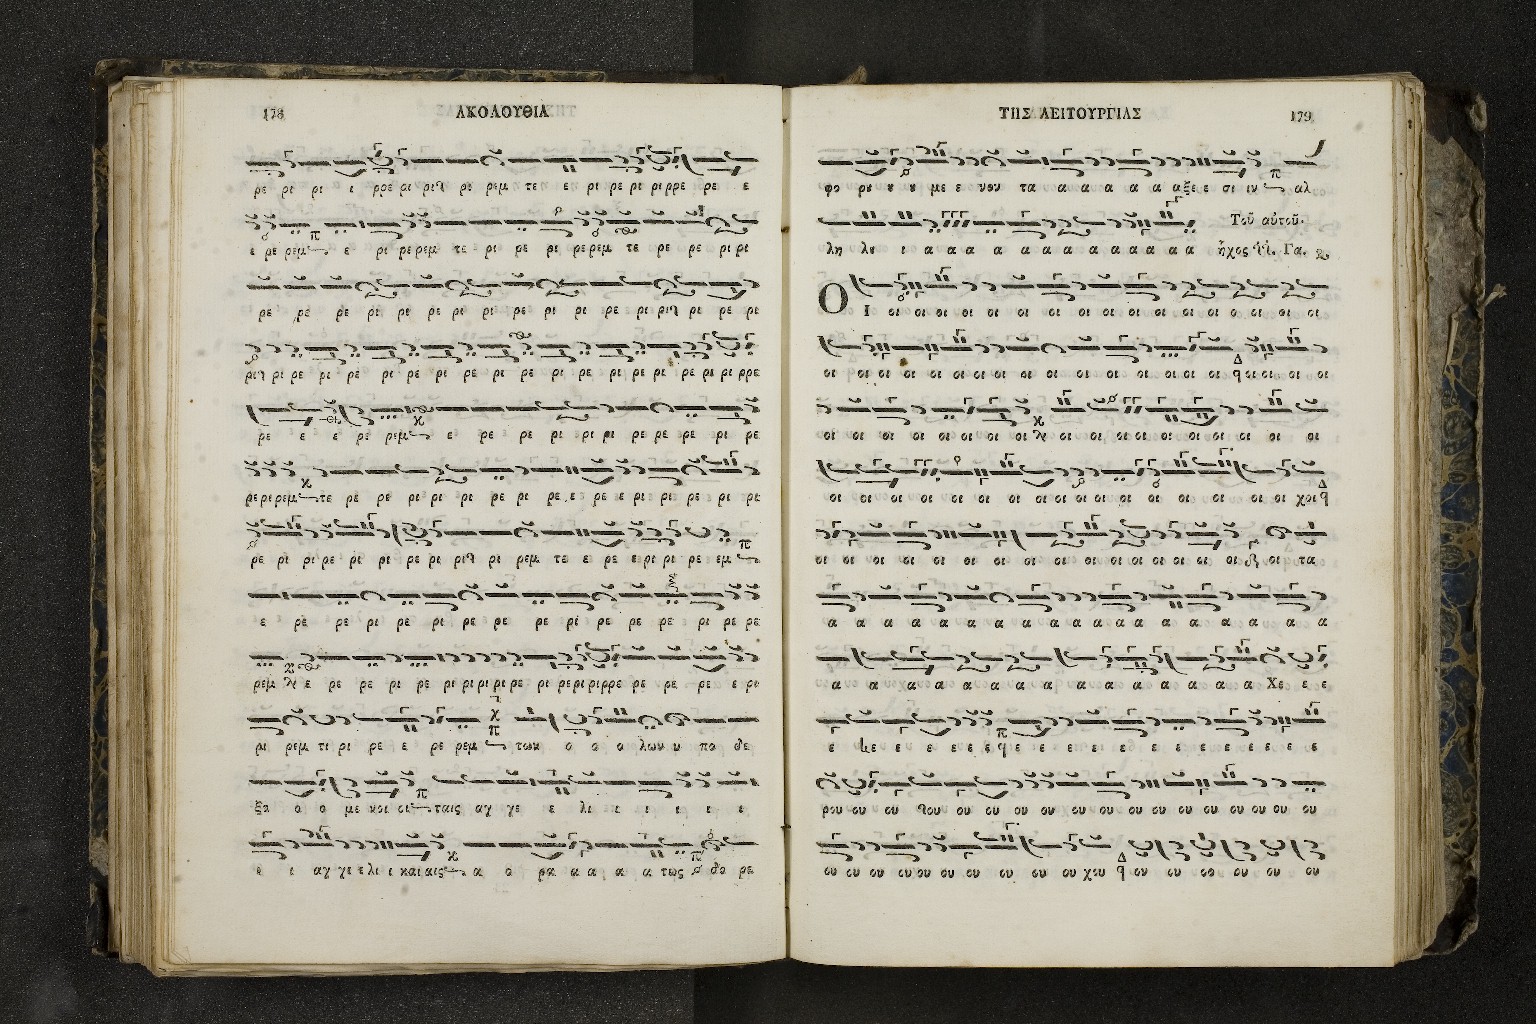 178 ΑΚΟΛΟΥΘΙΑ
ρε ρι ρι ι ρρε ρι ρι ρεμ τε ε ρι ρε ρι ρι ρρε ρε ε
ε ρε ρεμ ε ρι ρε ρεμ τε ρι ρε ρι ρε ρεμ τε ρε ρε ρι ρι
ρε ρε ρε ρι ρι ρε ρι ρι ρε ρι ρι ρε ρι ρι ρι ρε ρι
ρι ρι ρε ρι ρε ρι ρε ρι ρε ρι ρε ρι ρε ρι ρε ρι ρι ρι ρρε
ρε ε ε ρε ρεμ ε ρε ρε ρι ρι ρι ρι ρε ρε ρε ρι ρε
ρε ρε ρεμ τε ρε ρε ρι ρι ρε ρι ρε ε ρε ε ρι ρι ρε ρι ρι
ρε ρι ρι ρε ρι ρι ρε ρι ρι ρι ρεμ τε ε ρε ε ρι ρι ρε εμ
ε ρε ρε ρι ρε ρι ρε ρε ρε ρι ρε ρε ρε ρι ρε ρε
ρεμ ε ρε ρε ρι ρε ρι ρι ρι ρι ρε ρι ρε ρι ρι ρρε ρε ρε ρε ε ρι
ρι ρεμ τι ρι ρε ε ρε ρεμ των ο ο ο λων υ πο δε
ξο ο ο με νοι οι ταις αγ γε ε λι ι ι ι ι ε
ε ι αγ γε ε λι ι και αις α ο ρα α α α α τως δο ρε
ΤΗΣ ΛΕΙΤΟΥΡΓΙΑΣ 179
φο ρυ υ υ με ε νον τα α α α α α α ξε ε σι ιν αλ
λη λυ ι α α α α α α α α α α α α α Τοῦ αὐτοῦ.
ἦχος Γα.
Ο Ι οι οι οι οι οι οι οι οι οι οι οι οι οι ο οι οι οι
οι οι οι οι οι οι οι οι οι οι οι οι οι οι οι οι οι οι οι οι
οι οι οι οι οι οι οι οι οι οι οι οι οι οι οι οι οι οι οι
οι οι οι οι οι οι οι οι οι οι οι οι οι οι οι οι οι οι οι χοι
οι οι οι οι οι οι οι οι οι οι οι οι οι οι οι οι οι οι τα
α α α α α α α α α α α α α α α α α α α
α α α α α α α α α α α α α α α Χε ε ε
ε ε ε ε ε ε ε ε ε ε ε ε ε ε ε ε ε ε ε
ρου ου ου ου ου ου ου ου ου ου ου ου ου ου ου ου ου ου
ου ου ου ου ου ου ου ου ου ου ου χου ου ου ου ου ου ου